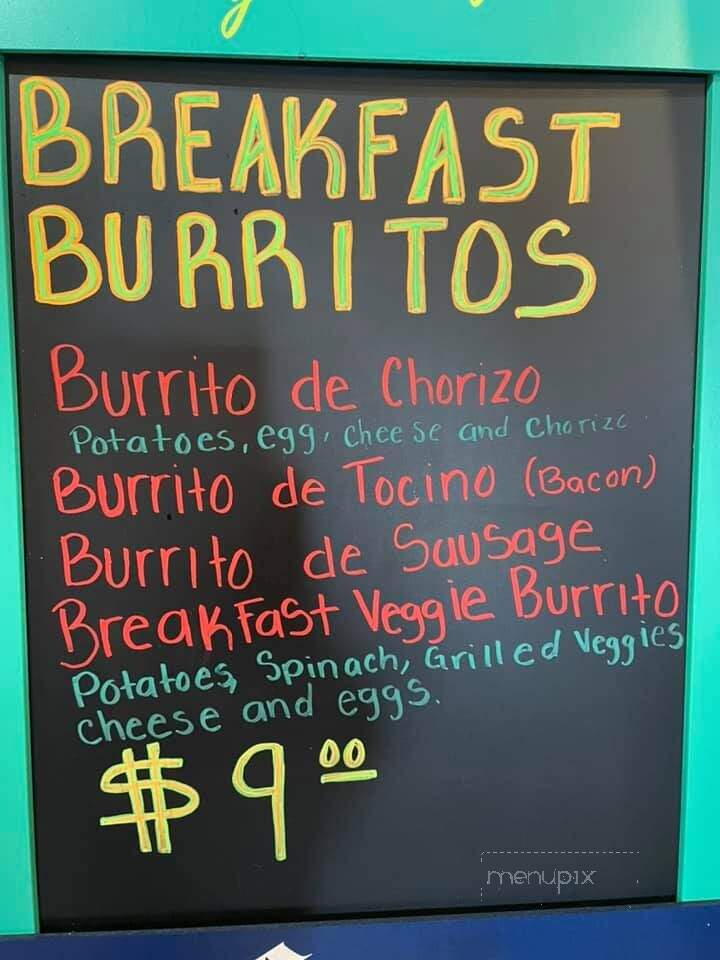 BREAKFAST
BURRITOS
Burrito de Chorizo
Potatoes, egg, cheese and chorizo
Burrito de Tocino (Bacon)
Burrito de Sausage
Breakfast Veggie Burrito
Potatoes, Spinach, Grilled Veggies
cheese and eggs.
$9.00
menupix